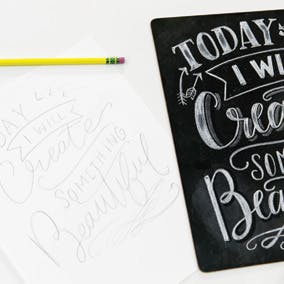 DAY ...
I WILL
Create
SOMETHING
Beautiful
TODAY
I WI
Crea
SOM
Beau